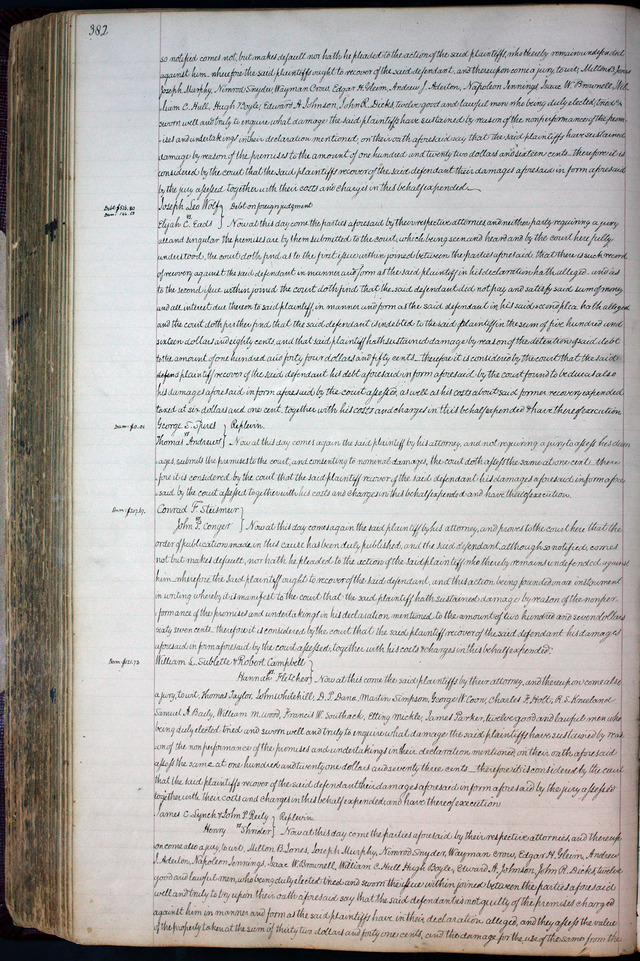 382
so notified comes not, but makes default nor hath he pleaded to the action of the said plaintiffs, who thereby remain undefended
against him. wherefore the said plaintiffs ought to recover of the said defendant, and thereupon come a jury, to wit; Milton B. Jones
Joseph Murphy, Nimrod Snyder, Wayman Crow Edgar H. Gleem, Andrew J. Aderton, Napoleon Jennings, Isaac W. Brownell, Wil-
liam C. Hull, Hugh Boyle, Edward H. Johnson, John R. Dicks, twelve good and lawful men who being duly elected tried &
sworn well and truly to enquire what damage the said plaintiffs have sustained by reason of the nonperformance of the prem-
ises and undertakings in their declaration mentioned, on their oath aforesaid say that the said plaintiffs have sustained
damage by reason of the premises to the amount of one hundred and twenty two dollars and sixteen cents— therefore it is
considered by the court that the said plaintiffs recover of the said defendant their damages aforesaid in form aforesaid
by the jury assessed, together with their costs and charges in this behalf expended.
Joseph Leo Wolf } Debt on foreign judgment
Debt $516.80
Dam: 144.50
Elijah C. Eads } Now at this day come the parties aforesaid by their respective attornies and neither party requiring a jury
all and singular the premises are by them submitted to the court, which being seen and heard and by the court here fully
understood, the court doth find, as to the first issue within joined between the parties aforesaid, that there is such record
of recovery against the said defendant in manner and form as the said plaintiff in his declaration hath alleged. and as
to the second issue within joined the court doth find that the said defendant did not pay and satisfy said sum of money
and all interest due thereon to said plaintiff, in manner and form as the said defendant in his said second plea hath alleged
and the court doth further find that the said defendant is indebted to the said plaintiff in the sum of five hundred and
sixteen dollars and eighty cents, and that said plaintiff hath sustained damage by reason of the detention of said debt
to the amount of one hundred and forty four dollars and fifty cents— therefore it is considered by the court that the said
plaintiff recover of the said defendant his debt aforesaid in form aforesaid by the court found to be due, as also
his damages aforesaid in form aforesaid by the court assessed, as well as his costs about said former recovery expended
taxed at six dollars and one cent, together with his costs and charges in this behalf expended & have thereof execution
George S. Spires } Replevin.
Dam: $0.01
Thomas Andrews } Now at this day comes again the said plaintiff by his attorney, and not requiring a jury to assess his dam-
ages, submits the premises to the court, and consenting to nominal damages, the court doth assess the same at one cent. there-
fore it is considered by the court that the said plaintiff recover of the said defendant his damages aforesaid in form afore-
said by the court assessed together with his costs and charges in this behalf expended and have thereof execution.
Conrad P. Stuemur }
Dam: $207.67.
vs John J. Conger } Now at this day comes again the said plaintiff by his attorney, and proves to the court here that the
order of publication made in this cause has been duly published, and the said defendant, although so notified, comes
not but makes default, nor hath he pleaded to the action of the said plaintiff who thereby remains undefended against
him. wherefore the said plaintiff ought to recover of the said defendant, and this action being founded on an instrument
in writing whereby it is manifest to the court that the said plaintiff hath sustained damage by reason of the nonper-
formance of the premises and undertakings in his declaration mentioned to the amount of two hundred and seven dollars
sixty seven cents— therefore it is considered by the court that the said plaintiff recover of the said defendant his damages
aforesaid in form aforesaid by the court assessed, together with his costs & charges in this behalf expended.
William L. Sublette & Robert Campbell }
Dam: $121.73
Hannah Fletcher } Now at this day come the said plaintiffs by their attorney, and thereupon come also
a jury, to wit, Thomas Taylor, John Whitehill, D. P. Dana, Martin Simpson, George W. Coon, Charles F. Holt, R. S. Kneeland
Samuel A. Baily, William M. Wood, Francis W. Southack, Elting Mickle, James Parker, twelve good and lawful men who
being duly elected tried and sworn well and truly to enquire what damage the said plaintiffs have sustained by reas-
on of the nonperformance of the premises and undertakings in their declaration mentioned, on their oath aforesaid
assess the same at one hundred and twenty one dollars and seventy three cents— therefore it is considered by the court
that the said plaintiffs recover of the said defendant their damages aforesaid in form aforesaid by the jury assessed
together with their costs and charges in this behalf expended, and have thereof execution.
James C. Lynch & John P. Reily } Replevin
Henry vs Shroder } Now at this day come the parties aforesaid by their respective attornies, and thereup-
on come also a jury, to wit, Milton B. Jones, Joseph Murphy, Nimrod Snyder, Wayman Crow, Edgar H. Gleem, Andrew
J. Aderton, Napoleon Jennings, Isaac W. Brownell, William C. Hull Hugh Boyle, Edward H. Johnson, John R. Dicks, twelve
good and lawful men, who being duly elected tried and sworn the issue within joined between the parties aforesaid
well and truly to try upon their oath aforesaid say that the said defendant is not guilty of the premises charged
against him in manner and form as the said plaintiffs have in their declaration alleged, and they assess the value
of the property taken at the sum of thirty two dollars and forty one cents, and the damage for the use of the same from the